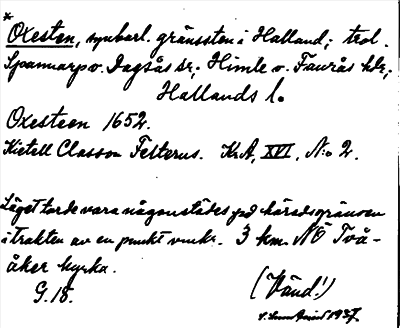 *
Oxesten, synbarl. gränssten i Halland; trol.
Spannarp o. Dagsås sr; Himle o. Faurås hdr;
Hallands l.
Oxesteen 1652.
Kietell Classon Felterus. KrA, XVI, N:o 2.
Läget torde vara någonstädes på häradsgränsen
i trakten av en punkt omkr. 3 km. NÖ Två-
åker kyrka.
G. 18.
(Vänd!)
1937.